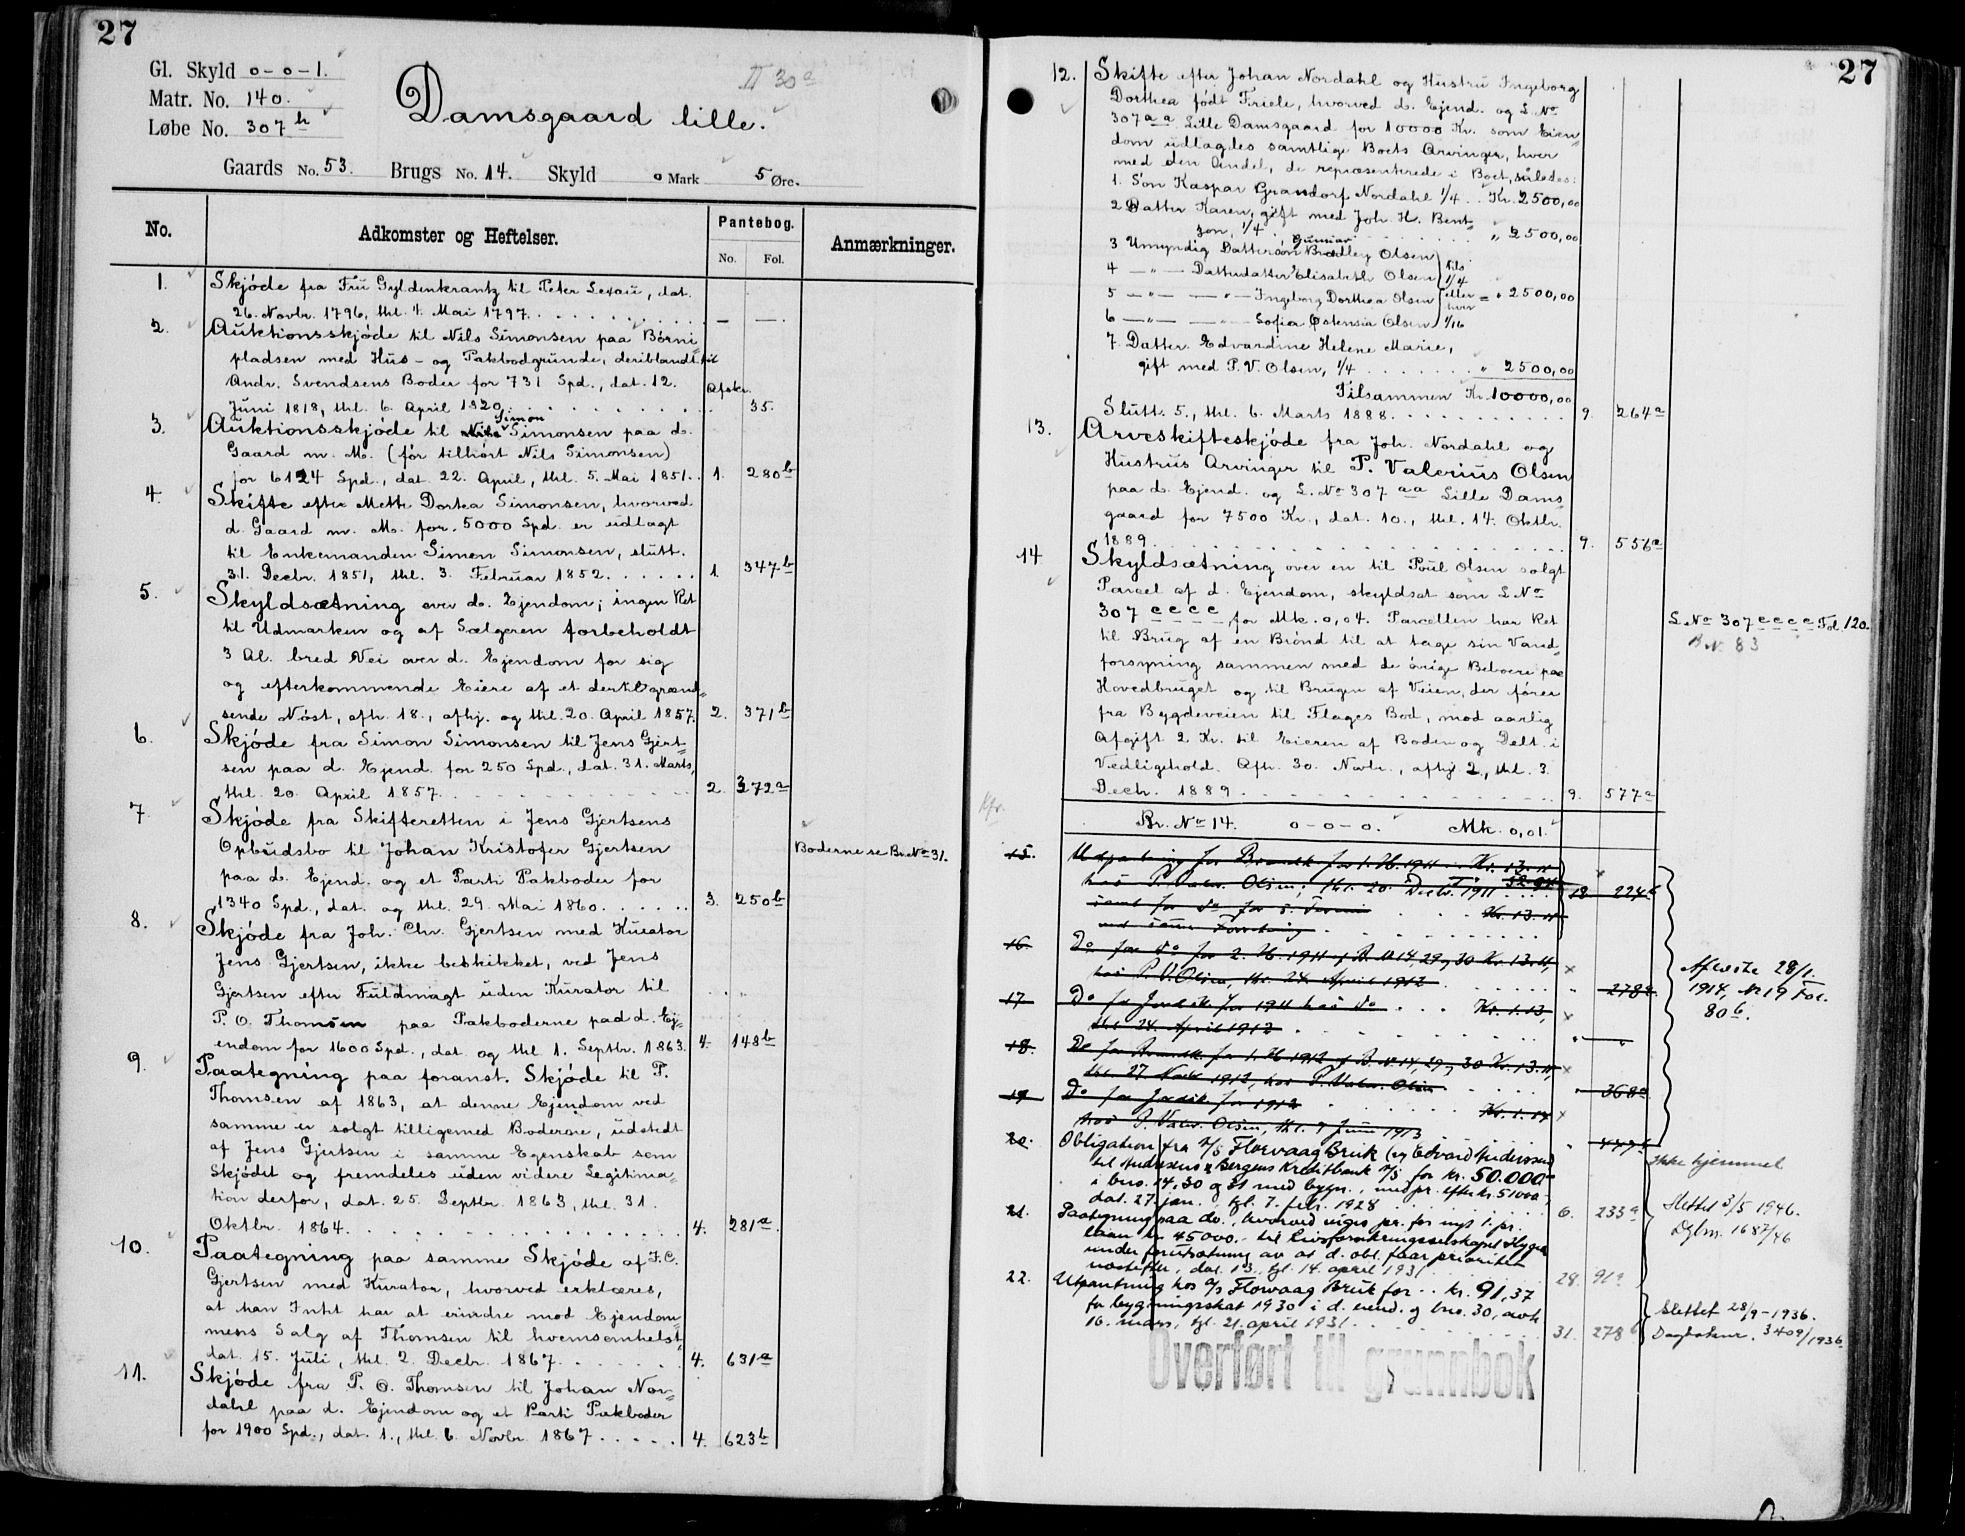 27
Gl. Skyld 0-0-1.
Matr. No. 140.
Løbe No. 307 h
II 30 a
Damsgaard lille.
Gaards No. 53. Brugs No. 14. Skyld 0 Mark 5 Øre.
No. Adkomster og Heftelser. Pantebog. Anmærkninger.
No. Fol.
1. Skjøde fra Fru Gyldenkrantz til Peter Lexau, dat.
26. Novbr. 1796, thl. 4. Mai 1797. — —
2. Auktionsskjøde til Nils Simonsen paa Børni-
pladsen med Hus- og Pakbodgrunde, deriblandt til
Andr. Svendsens Boder for 731 Spd., dat. 12.
Juni 1818, thl. 6. April 1820. Afskr. 35.
3. Auktionsskjøde til Nils Simon Simonsen paa d.
Gaard m. M. (før tilhørt Nils Simonsen)
for 6124 Spd., dat. 22. April, thl. 5. Mai 1851. 1. 280 b
4. Skifte efter Mette Dortea Simonsen, hvorved
d. Gaard m. M. for 5000 Spd. er udlagt
til Enkemanden Simon Simonsen, slutt.
31. Decbr. 1851, thl. 3. Februar 1852. 1. 347 b
5. Skyldsætning over d. Ejendom; ingen Ret
til Udmarken og af Sælgeren forbeholdt
3 Al. bred Vei over d. Ejendom for sig
og efterkommende Eiere af et dertil grænd-
sende Nøst, afh. 18., afhj. og thl. 20. April 1857. 2. 371 b
6. Skjøde fra Simon Simonsen til Jens Gjert-
sen paa d. Ejend. for 250 Spd., dat. 31. Marts,
thl. 20. April 1857. 2. 372 a
7. Skjøde fra Skifteretten i Jens Gjertsens
Opbudsbo til Johan Kristofer Gjertsen
paa d. Ejend. og et Parti Pakboder for
1340 Spd., dat. og thl. 29. Mai 1860. 3. 250 b
Boderne se Br. No 31.
8. Skjøde fra Joh. Chr. Gjertsen med Kurator
Jens Gjertsen, ikke beskikket, ved Jens
Gjertsen efter Fuldmagt uden Kurator til
P. O. Thomsen paa Pakboderne paa d. Ej-
endom for 1600 Spd., dat. og thl. 1. Septbr. 1863. 4. 148 b
9. Paategning paa foranst. Skjøde til P.
Thomsen af 1863, at denne Ejendom ved
samme er solgt tilligemed Boderne, udstedt
af Jens Gjertsen i samme Egenskab som
Skjødet og fremdeles uden videre Legitima-
tion derfor, dat. 25. Septbr. 1863, thl. 31.
Oktbr. 1864. 4. 281 a.
10. Paategning paa samme Skjøde af J. C.
Gjertsen med Kurator, hvorved erklæres,
at han Intet har at erindre mod Ejendom-
mens Salg af Thomsen til hvemsomhelst,
dat. 15. Juli, thl. 2. Decbr. 1867. 4. 631 a
11. Skjøde fra P. O. Thomsen til Johan Nor-
dahl paa d. Ejendom og et Parti Pakboder
for 1900 Spd., dat. 1., thl. 6. Novbr. 1867. 4. 623 b
27
12. Skifte efter Johan Nordahl og Hustru Ingeborg
Dorthea født Friele, hvorved d. Ejend. og L No
307 aa Lille Damsgaard for 10000 Kr. som Eien-
dom udlagdes samtlige Boets Arvinger, hver
med den Andel, de repræsenterede i Boet, således:
1. Søn Kaspar Grandorf Nordahl 1/4 .. Kr. 2500,00
2 Datter Karen, gift med Joh. H. Bent-
zon, 1/4 " 2500,00
3 Umyndig Dattersøn Gunnar Bradley Olsen
4 — " — Datterdatter Elisabeth Olsen tils 1/4
5 — " — — " — Ingeborg Dorthea Olsen eller = " 2500,00
6 — " — — " — Sofia Østensia Olsen hver 1/16
7. Datter Edvardine Helene Marie,
gift med P. V. Olsen, 1/4 " 2500,00
Tilsammen Kr. 10000,00
Slutt. 5., thl. 6. Marts 1888. 9. 264 a
13. Arveskifteskjøde fra Joh. Nordahl og
Hustrus Arvinger til P. Valerius Olsen
paa d. Ejend. og L. No 307 aa Lille Dams-
gaard for 7500 Kr., dat. 10., thl. 14. Oktbr.
1889. 9. 556 a
14 Skyldsætning over en til Poul Olsen solgt
Parcel af d. Ejendom, skyldsat som L No
307 eeee for Mk. 0,04. Parcellen har Ret
til Brug af en Brønd til at tage sin Vand-
forsyning sammen med de øvrige Beboere paa
Hovedbruget og til Brugen af Veien, der fører
fra Bygdeveien til Flages Bod, mod aarlig
Afgift 2 Kr. til Eieren af Boden og Delt. i
Vedligehold. Afh. 30. Novbr., afhj 2., thl. 3.
Decbr. 1889. 9. 577 a
L No 307 eeee Fol. 120.
B. No. 83
Kfr.
Br. No 14. 0-0-0. Mk. 0,01.
15. Udpantning for Brandk. for 1. H. 1911 Kr. 13.11
hos P. Valer. Olsen, thl. 20. Decbr. 1911 18 224 b
samt for do for 5. Termin Kr. 13.11
ved samme Forretning
16. Do for do for 2. H. 1911 og B. No 14, 29 og 30 Kr. 13.11,
hos P. V. Olsen, thl. 24. April 1912 " 278 a
17 Do for Jordsk. for 1911 hos do Kr. 1.13,
thl. 24. April 1912 " — "
18. Do for Brandk. for 1. H. 1912 af B. No 14, 29 og 30 Kr. 13.11,
thl. 27. Novbr. 1912, hos P. Valer. Olsen " 368 a
19 Do for Jordsk. for 1912 Kr. 1.14
hos P. Valer. Olsen, thl. 9 Juni 1913 " 447 b
Aflæste 28/1.
1914, No 19 Fol.
80 b.
20. Obligation fra A/S Florvaag Bruk (og Edvard Anderssen)
til Andresens & Bergens Kreditbank A/S for kr. 50.000
i bno. 14, 30 og 31 med bygn., med pr. efter kr. 51000
dat. 27. jan. tgl. 7. febr. 1928 6. 233 a
Ikke hjemmel
21. Paategning paa do., hvorved viges pr. for nyt 1. pr.
laan kr. 45000.- til Livsforsikringsselskapet Hygea
under forutsætning av at d. obl. faar prioritet
næstefter, dat. 13., tgl. 14. april 1931 28. 91 a
Slettet 3/5 1946.
Dgbnr. 1687/46
22. Utpantning hos A/S Florvaag Bruk for .. kr. 91,37
for bygningsskat 1930 i d. eiend. og bno. 30, avh.
16. mars, tgl. 21. april 1931. 31. 278 b
Slettet 28/9-1936.
Dagboknr. 3409/1936.
Overført til grunnbok